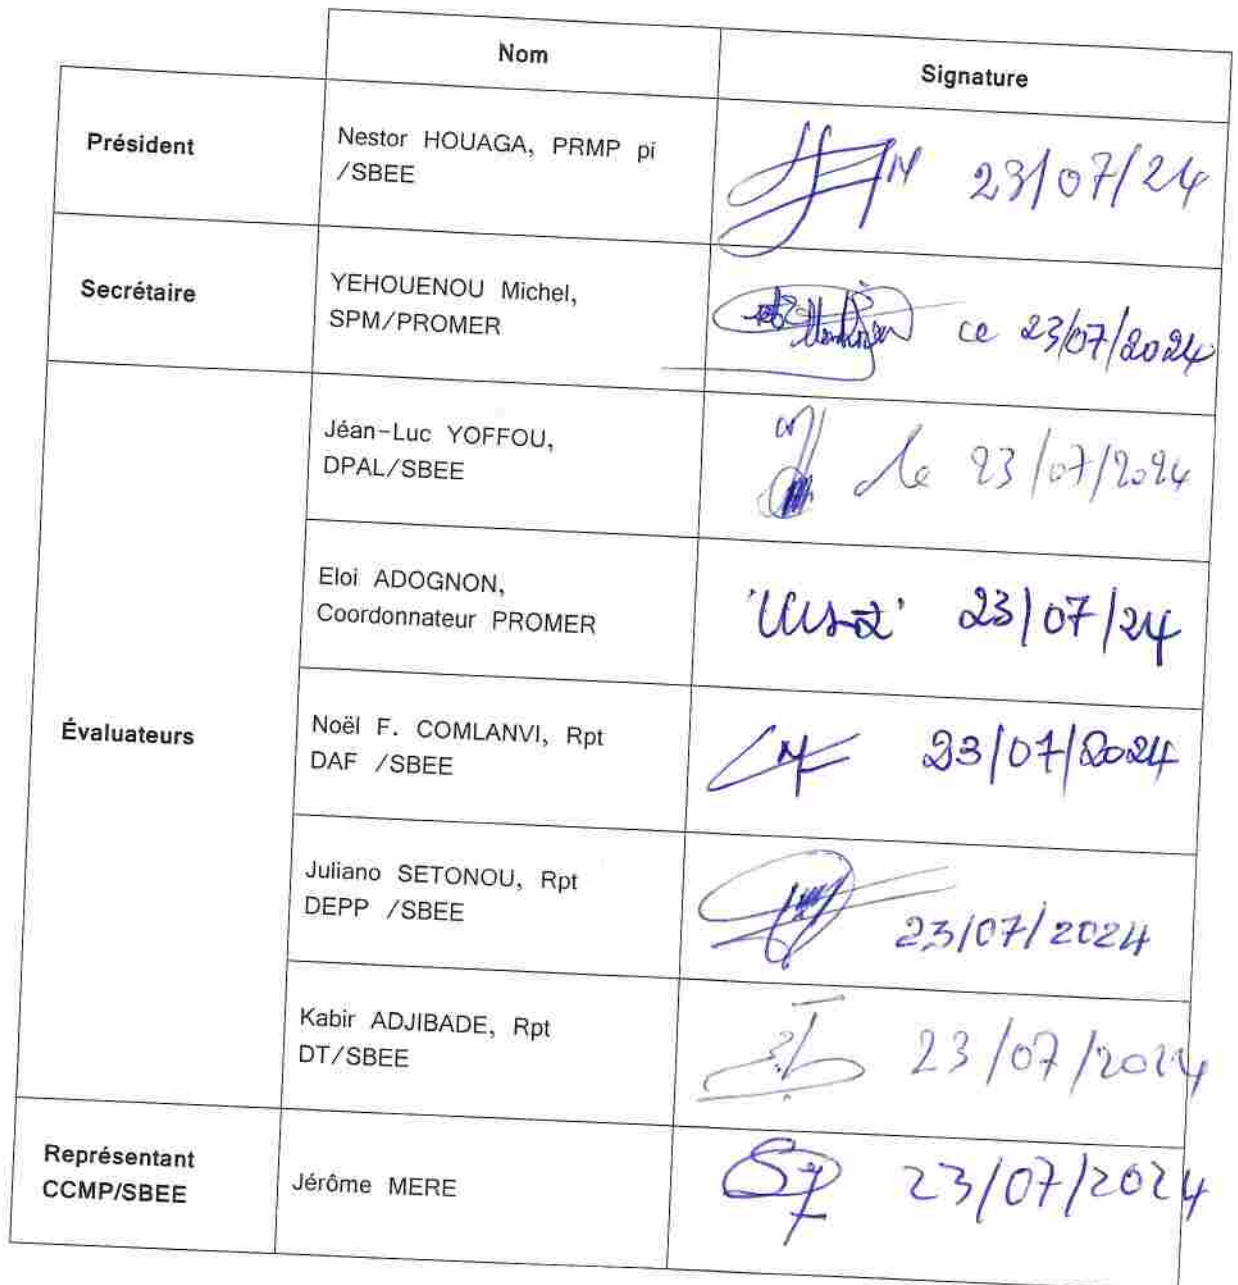 Nom
Signature
Président
Nestor HOUAGA, PRMP pi
/SBEE
23/07/24
Secrétaire
YEHOUENOU Michel,
SPM/PROMER
ce 23/07/2024
Évaluateurs
Jéan-Luc YOFFOU,
DPAL/SBEE
le 23/07/2024
Eloi ADOGNON,
Coordonnateur PROMER
23/07/24
Noël F. COMLANVI, Rpt
DAF /SBEE
23/07/2024
Juliano SETONOU, Rpt
DEPP /SBEE
23/07/2024
Kabir ADJIBADE, Rpt
DT/SBEE
23/07/2024
Représentant
CCMP/SBEE
Jérôme MERE
23/07/2024